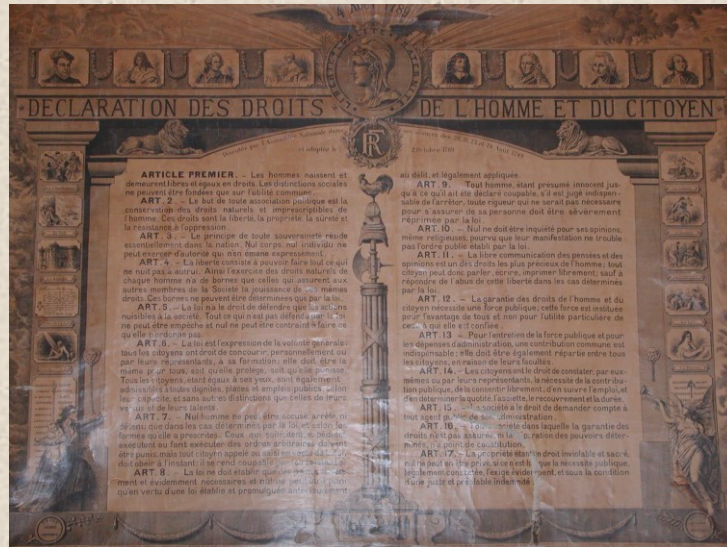 4 Août 1789
DECLARATION DES DROITS DE L'HOMME ET DU CITOYEN
RF
ARTICLE PREMIER. – Les hommes naissent et
demeurent libres et égaux en droits. Les distinctions sociales
ne peuvent être fondées que sur l'utilité commune.
ART. 2. – Le but de toute association politique est la
conservation des droits naturels et imprescriptibles de
l'homme. Ces droits sont la liberté, la propriété, la sûreté et
la résistance à l'oppression.
ART. 3. – Le principe de toute souveraineté réside
essentiellement dans la nation. Nul corps, nul individu ne
peut exercer d'autorité qui n'en émane expressément.
ART. 4. – La liberté consiste à pouvoir faire tout ce qui
ne nuit pas à autrui. Ainsi l'exercice des droits naturels de
chaque homme n'a de bornes que celles qui assurent aux
autres membres de la Société la jouissance de ces mêmes
droits. Ces bornes ne peuvent être déterminées que par la loi.
ART. 5. – La loi n'a le droit de défendre que les actions
nuisibles à la société. Tout ce qui n'est pas défendu par la loi
ne peut être empêché et nul ne peut être contraint à faire ce
qu'elle n'ordonne pas.
ART. 6. – La loi est l'expression de la volonté générale;
tous les citoyens ont droit de concourir, personnellement ou
par leurs représentants, à sa formation; elle doit être la
même pour tous, soit qu'elle protège, soit qu'elle punisse.
Tous les citoyens, étant égaux à ses yeux, sont également
admissibles à toutes dignités, places et emplois publics, selon
leur capacité, et sans autres distinctions que celles de leurs
vertus et de leurs talents.
ART. 7. – Nul homme ne peut être accusé, arrêté ni
détenu que dans les cas déterminés par la loi, et selon les
formes qu'elle a prescrites. Ceux qui sollicitent, expédient,
exécutent ou font exécuter des ordres arbitraires doivent
être punis; mais tout citoyen appelé ou saisi en vertu de la loi
doit obéir à l'instant; il se rend coupable
ART. 8. – La loi ne doit établir que des peines
ment et évidemment nécessaires et nul ne peut être puni
qu'en vertu d'une loi établie et promulguée antérieurement
au délit, et légalement appliquée.
ART. 9. – Tout homme, étant présumé innocent jus-
qu'à ce qu'il ait été déclaré coupable, s'il est jugé indispen-
sable de l'arrêter, toute rigueur qui ne serait pas nécessaire
pour s'assurer de sa personne doit être sévèrement
réprimée par la loi.
ART. 10. – Nul ne doit être inquiété pour ses opinions,
même religieuses, pourvu que leur manifestation ne trouble
pas l'ordre public établi par la loi.
ART. 11. – La libre communication des pensées et des
opinions est un des droits les plus précieux de l'homme; tout
citoyen peut donc parler, écrire, imprimer librement; sauf à
répondre de l'abus de cette liberté dans les cas déterminés
par la loi.
ART. 12. – La garantie des droits de l'homme et du
citoyen nécessite une force publique; cette force est instituée
pour l'avantage de tous et non pour l'utilité particulière de
ceux à qui elle est confiée.
ART. 13. – Pour l'entretien de la force publique et pour
les dépenses d'administration, une contribution commune est
indispensable; elle doit être également répartie entre tous
les citoyens, en raison de leurs facultés.
ART. 14. – Les citoyens ont le droit de constater, par eux-
mêmes ou par leurs représentants, la nécessité de la contribu-
tion publique, de la consentir librement, d'en suivre l'emploi, et
d'en déterminer la quotité, l'assiette, le recouvrement et la durée.
ART. 15. – La société a le droit de demander compte à
tout agent public de son administration.
ART. 16. – Toute société dans laquelle la garantie des
droits n'est pas assurée, ni la séparation des pouvoirs déter-
minée, n'a point de constitution.
ART. 17. – La propriété étant un droit inviolable et sacré,
nul ne peut en être privé, si ce n'est lorsque la nécessité publique,
légalement constatée, l'exige évidemment, et sous la condition
d'une juste et préalable indemnité